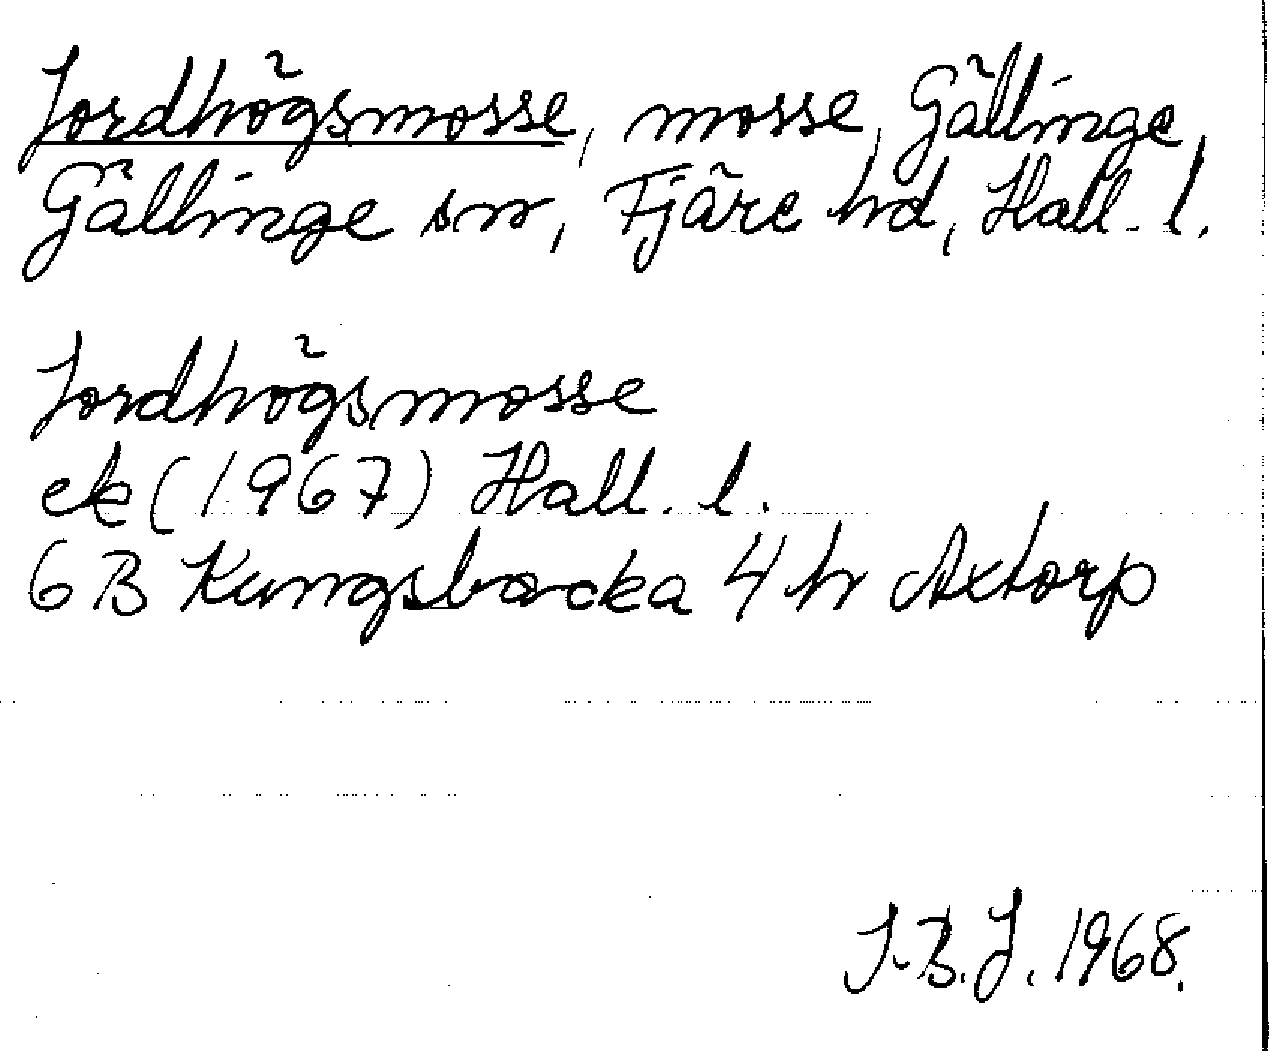 Jordhögsmosse, mosse, Gällinge,
Gällinge sn, Fjäre hd, Hall. l.
Jordhögsmosse
ek (1967) Hall. l.
6B Kungsbacka 4h Axtorp
I.B.J. 1968.